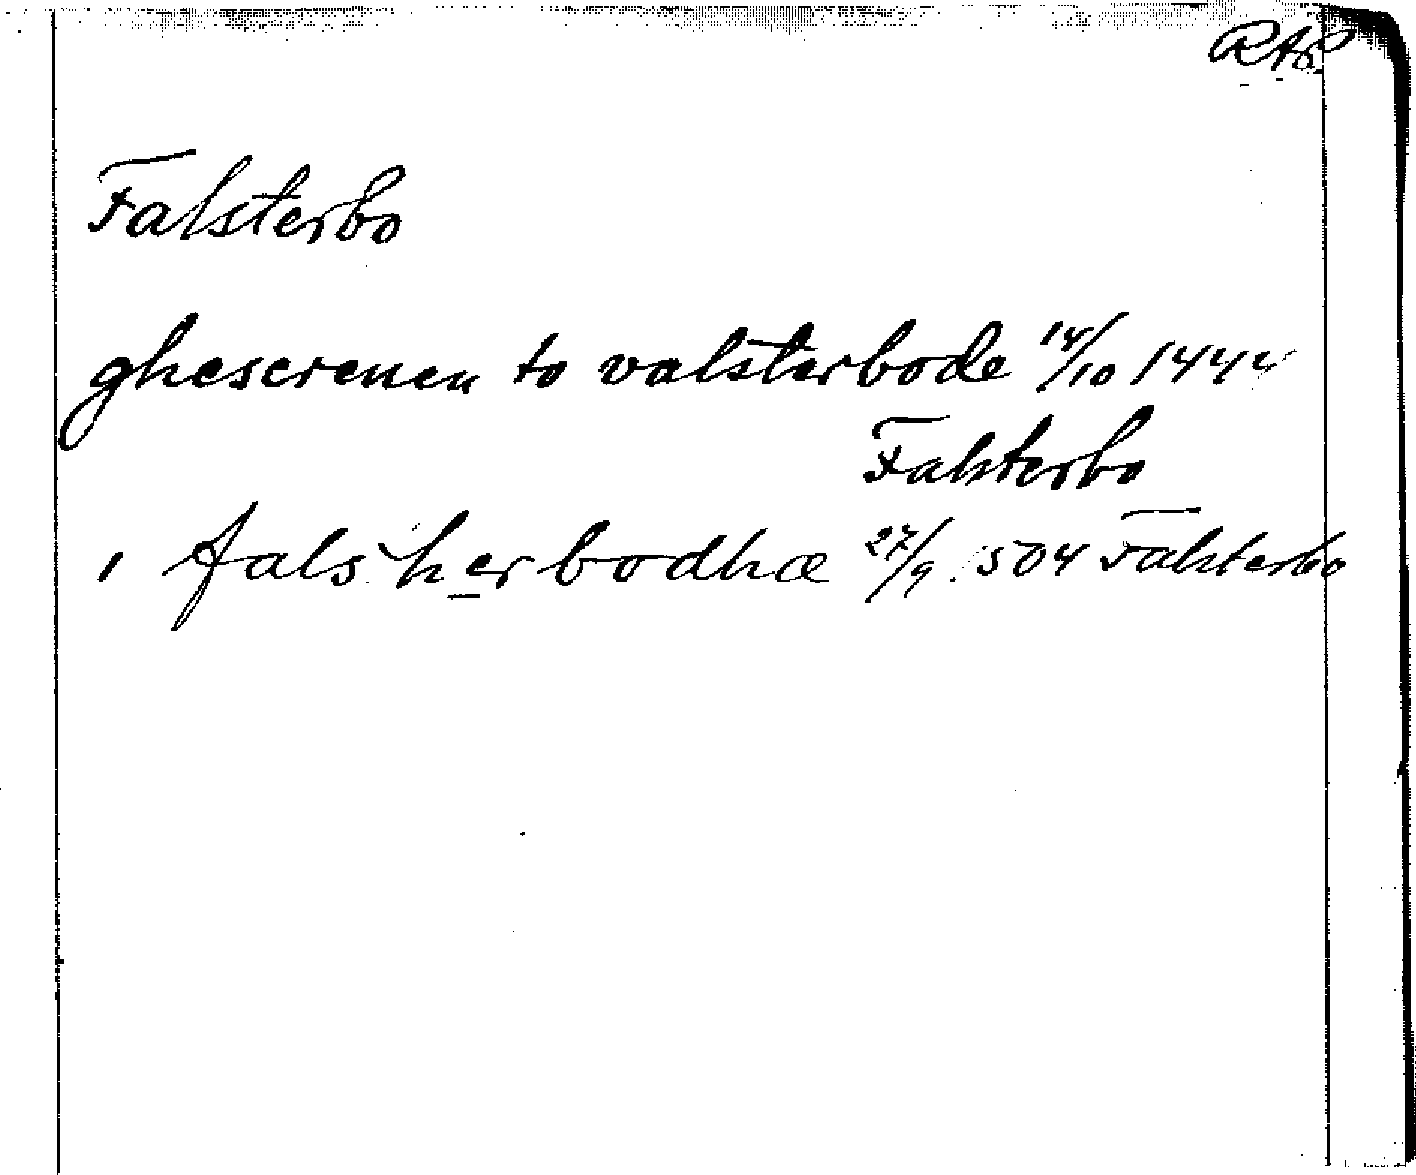 RAP
Falsterbo
ghescreuen to valsterbode 14/10 1444
Falsterbo
i falsherbodhæ 27/9 504 Falsterbo